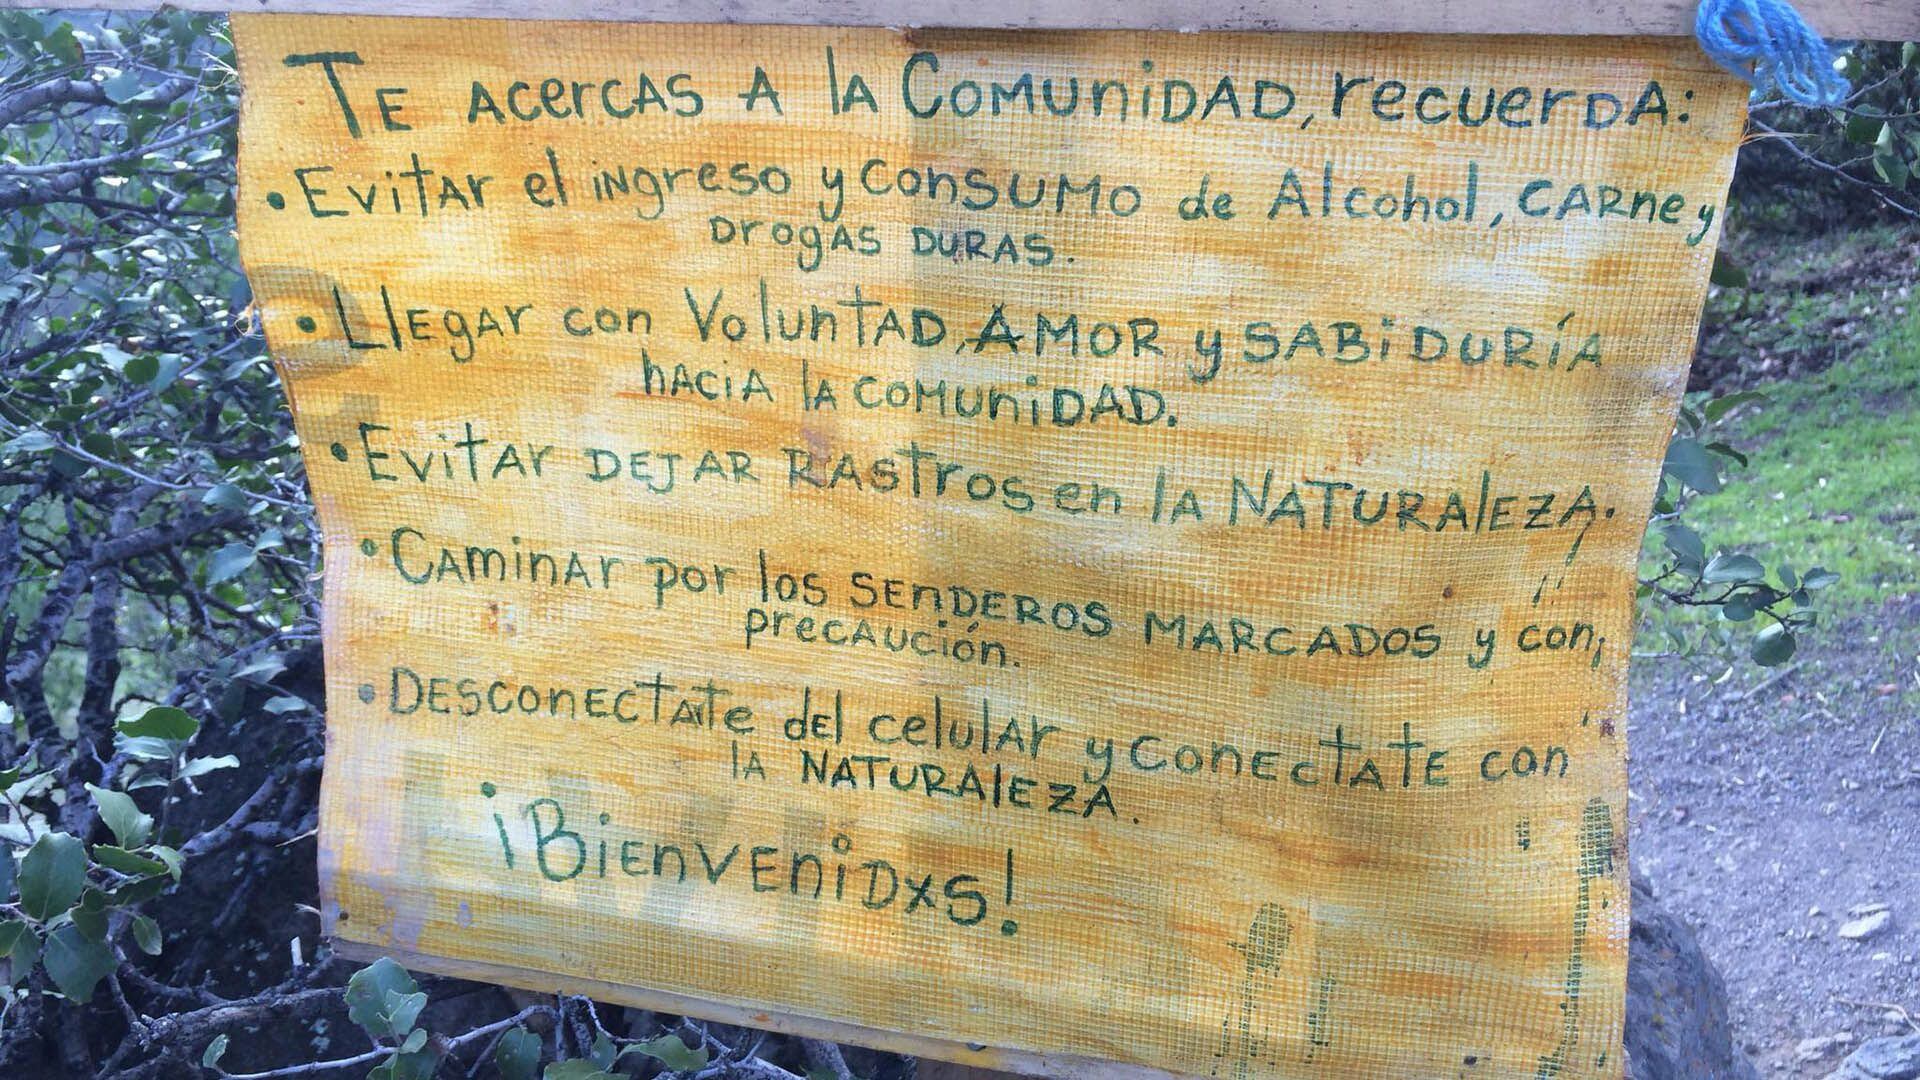 TE ACERCAS A LA COMUNIDAD, RECUERDA:
• Evitar el ingreso y consumo de Alcohol, CARne y
DROGAS DURAS.
• Llegar con Voluntad, AMOR y SABIDURÍA
hacia la comunidad.
• Evitar DEJAR RASTROS en la NATURALEZA.
• Caminar por los SENDEROS MARCADOS y con
precaución.
• DESCONECTATE del celular y CONECTATE con
la NATURALEZA.
¡BIENVENIDXS!